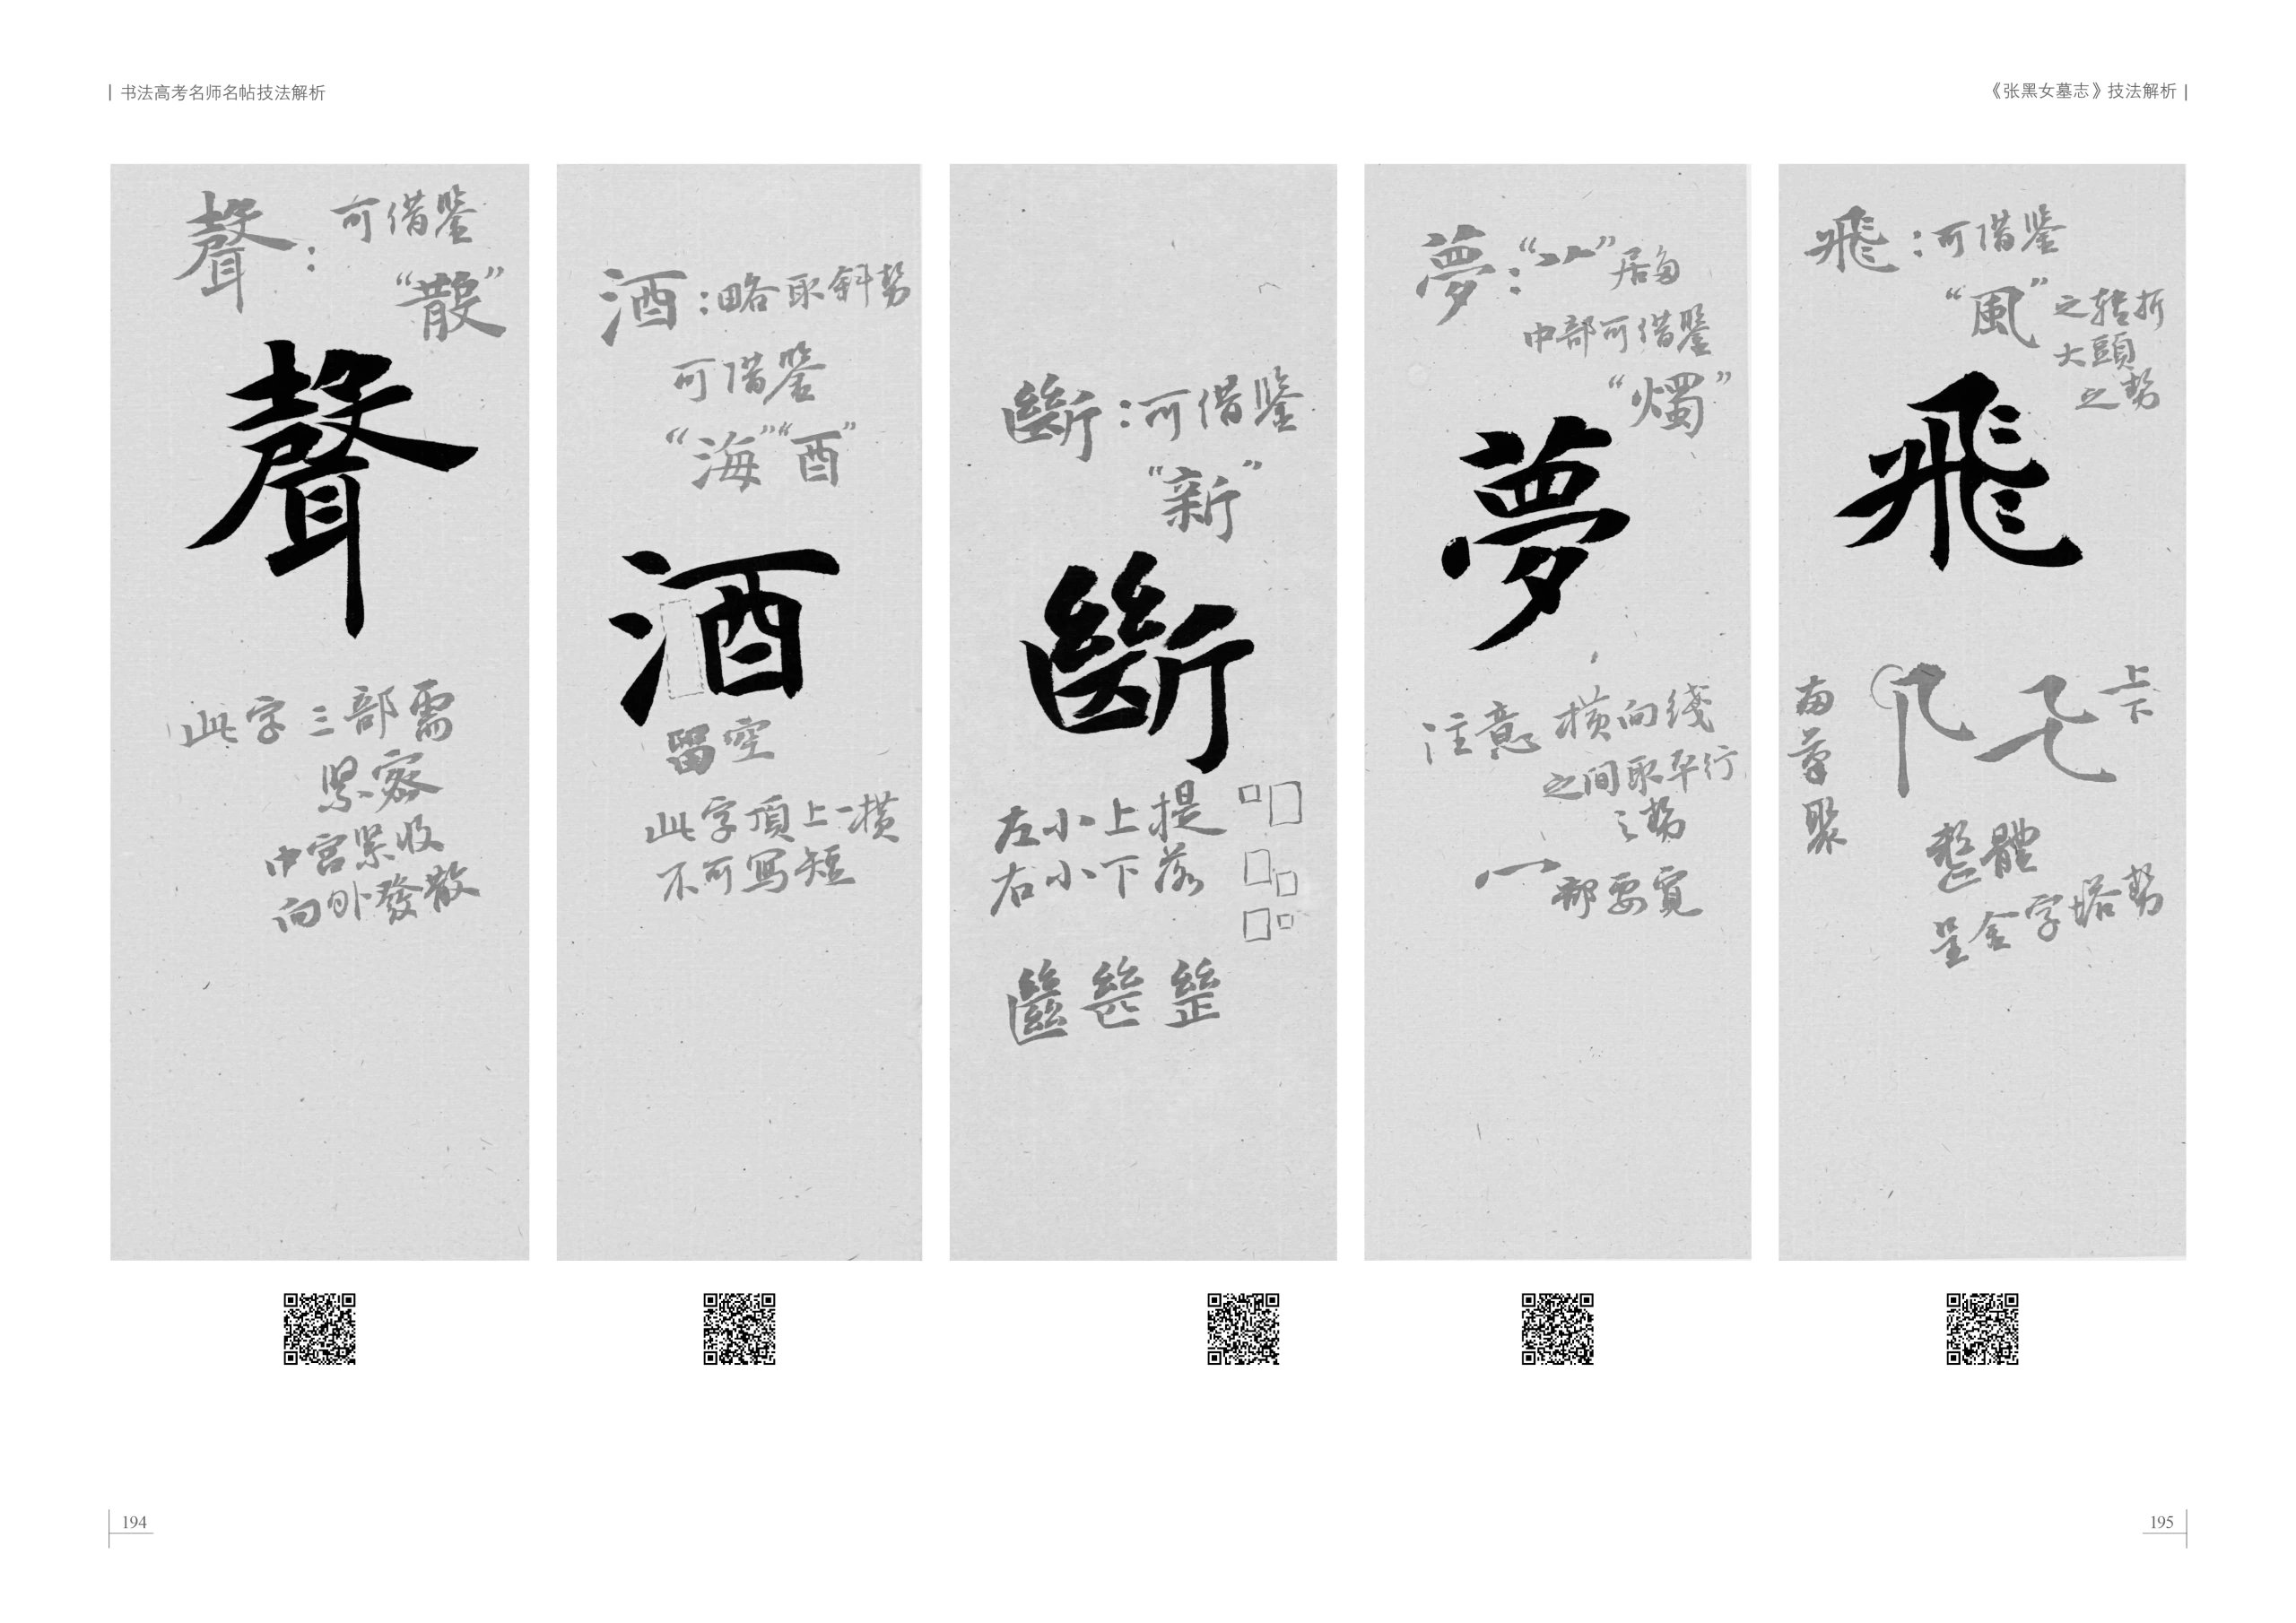 书法高考名师名帖技法解析
《张黑女墓志》技法解析
聲：可借鉴
“散”
聲
此字三部需
紧密
中宫紧收
向外發散
酒：略取斜势
可借鉴
“海”“酉”
酒
留空
此字頂上一横
不可寫短
斷：可借鉴
“新”
斷
左小上提
右小下落
夢：“艹”居
中部可借鉴
“燭”
夢
注意横向綫
之间取平行
之势
冖部要寬
飛：可借鉴
“風”之转折
大頭
之势
飛
上
下
聚
整體
呈金字塔势
194
195